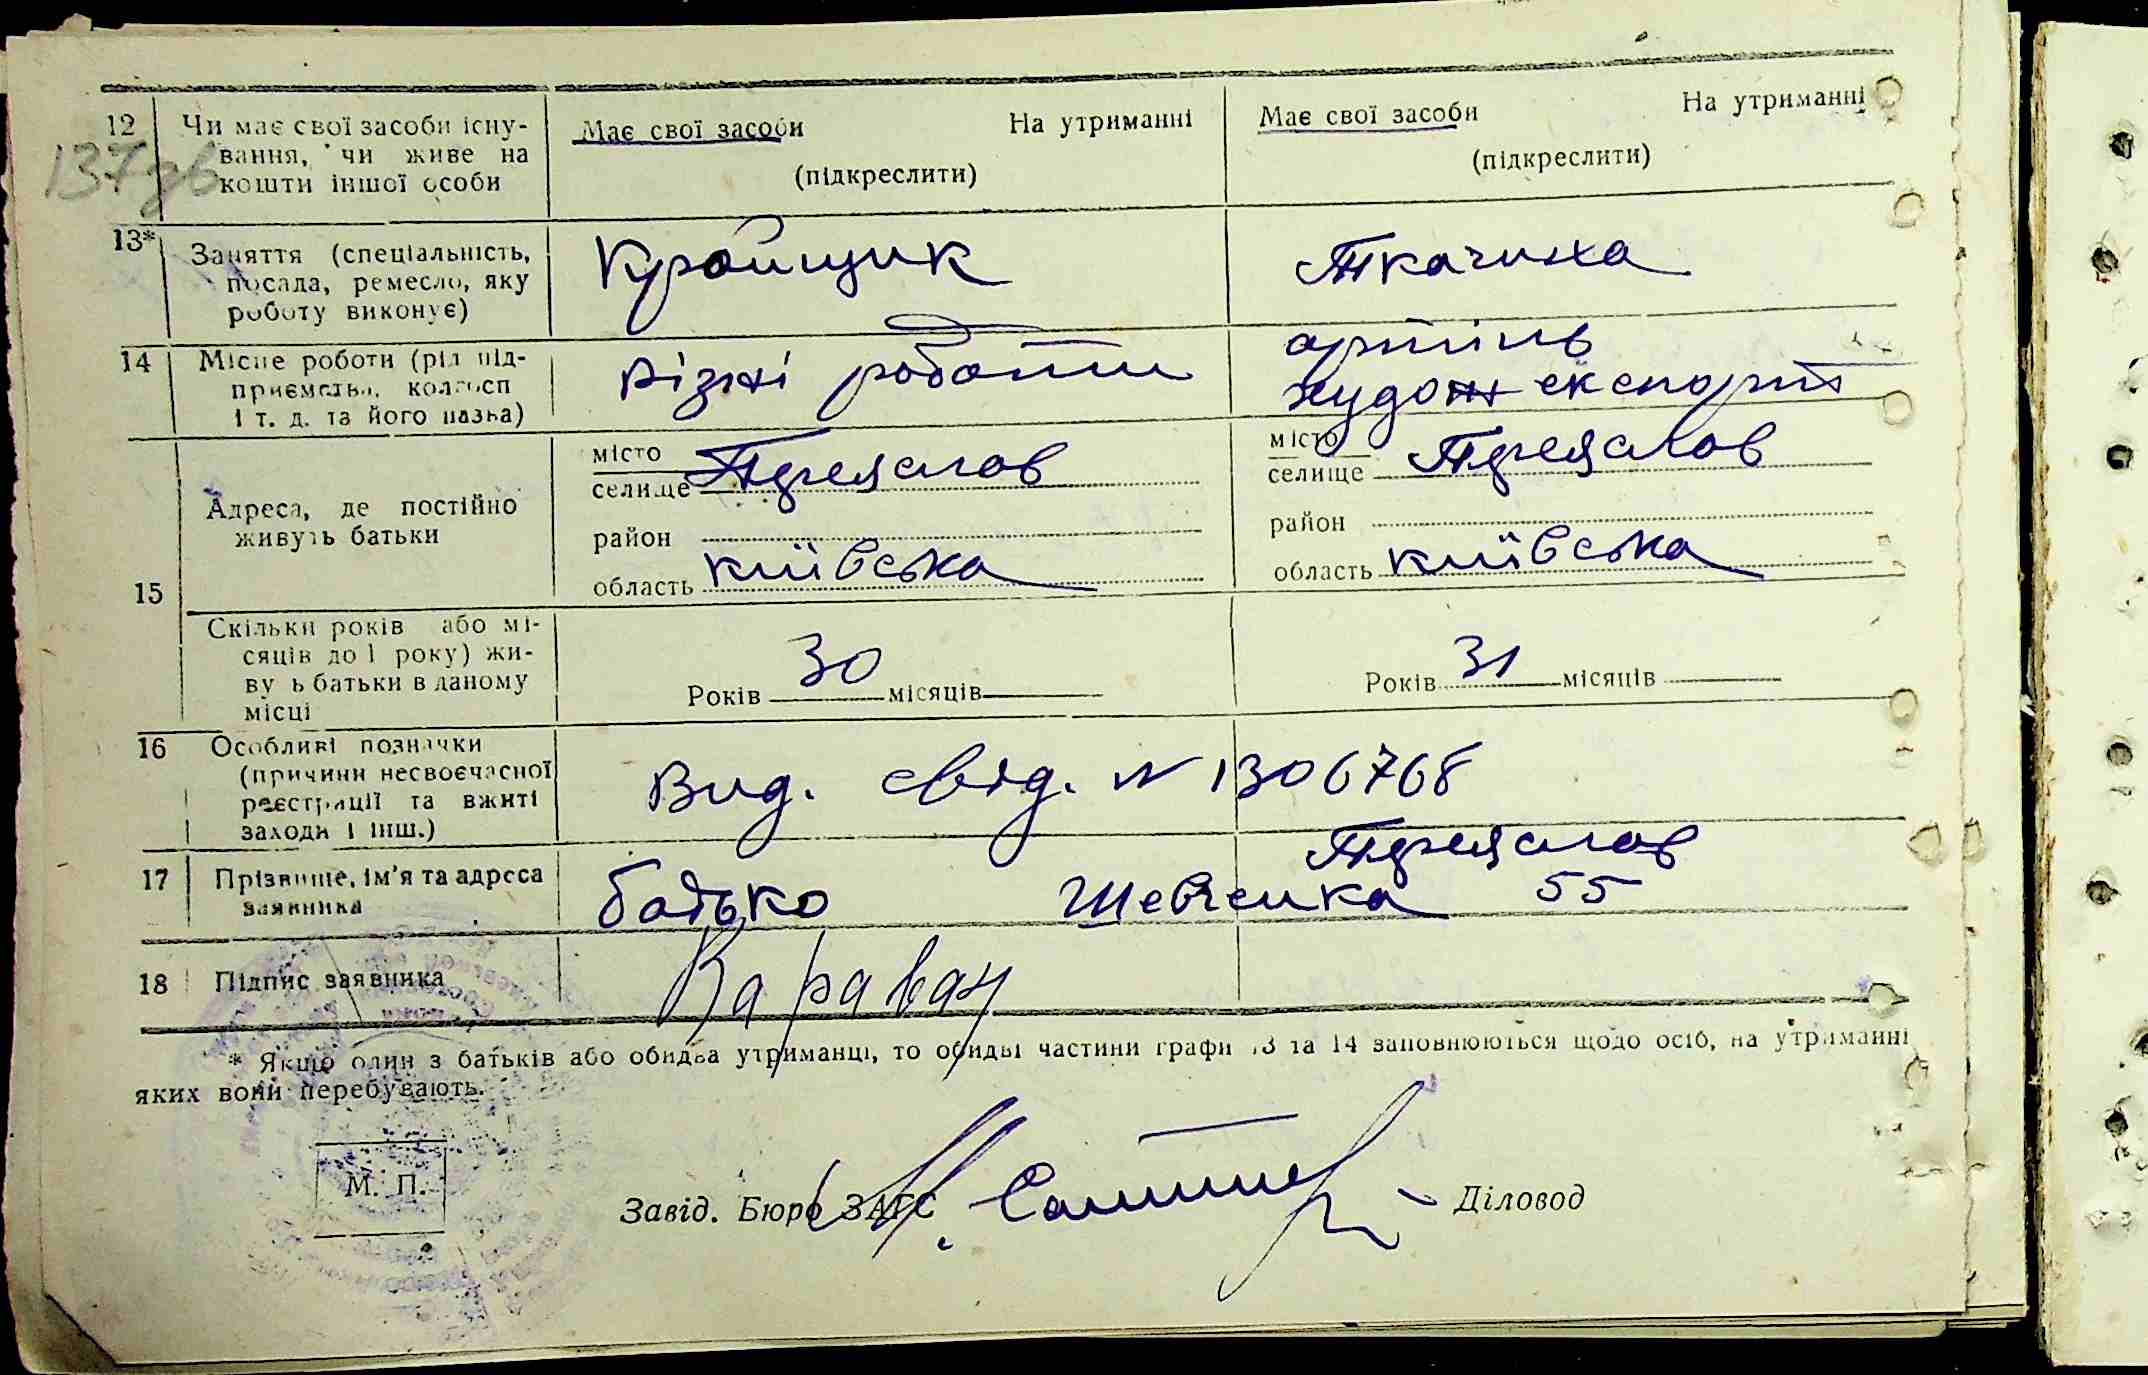 137зв
12 Чи має свої засоби існу-
вання, чи живе на
кошти іншої особи
Має свої засоби На утриманні
(підкреслити)
Має свої засоби На утриманні
(підкреслити)
13* Заняття (спеціальність,
посада, ремесло, яку
роботу виконує)
Кройщик
Ткачиха
14 Місце роботи (рід під-
приємства, колгосп
і т. д. та його назва)
Різні роботи
артіль
худож експорт
15 Адреса, де постійно
живуть батьки
місто
селище Переяслов
район
область Київська
місто
селище Переяслов
район
область Київська
Скільки років або мі-
сяців до 1 року) жи-
ву ь батьки в даному
місці
Років 30 місяців
Років 31 місяців
16 Особливі позначки
(причини несвоєчасної
реєстрації та вжиті
заходи і інш.)
Вид. свід. N 1306768
17 Прізвище, ім'я та адреса
заявника
Переяслов
батько Шевченка 55
18 Підпис заявника
Караван
* Якщо один з батьків або обидва утриманці, то обидві частини графи 13 та 14 заповнюються щодо осіб, на утриманні
яких вони перебувають.
М. П.
Завід. Бюро ЗАГС
Діловод